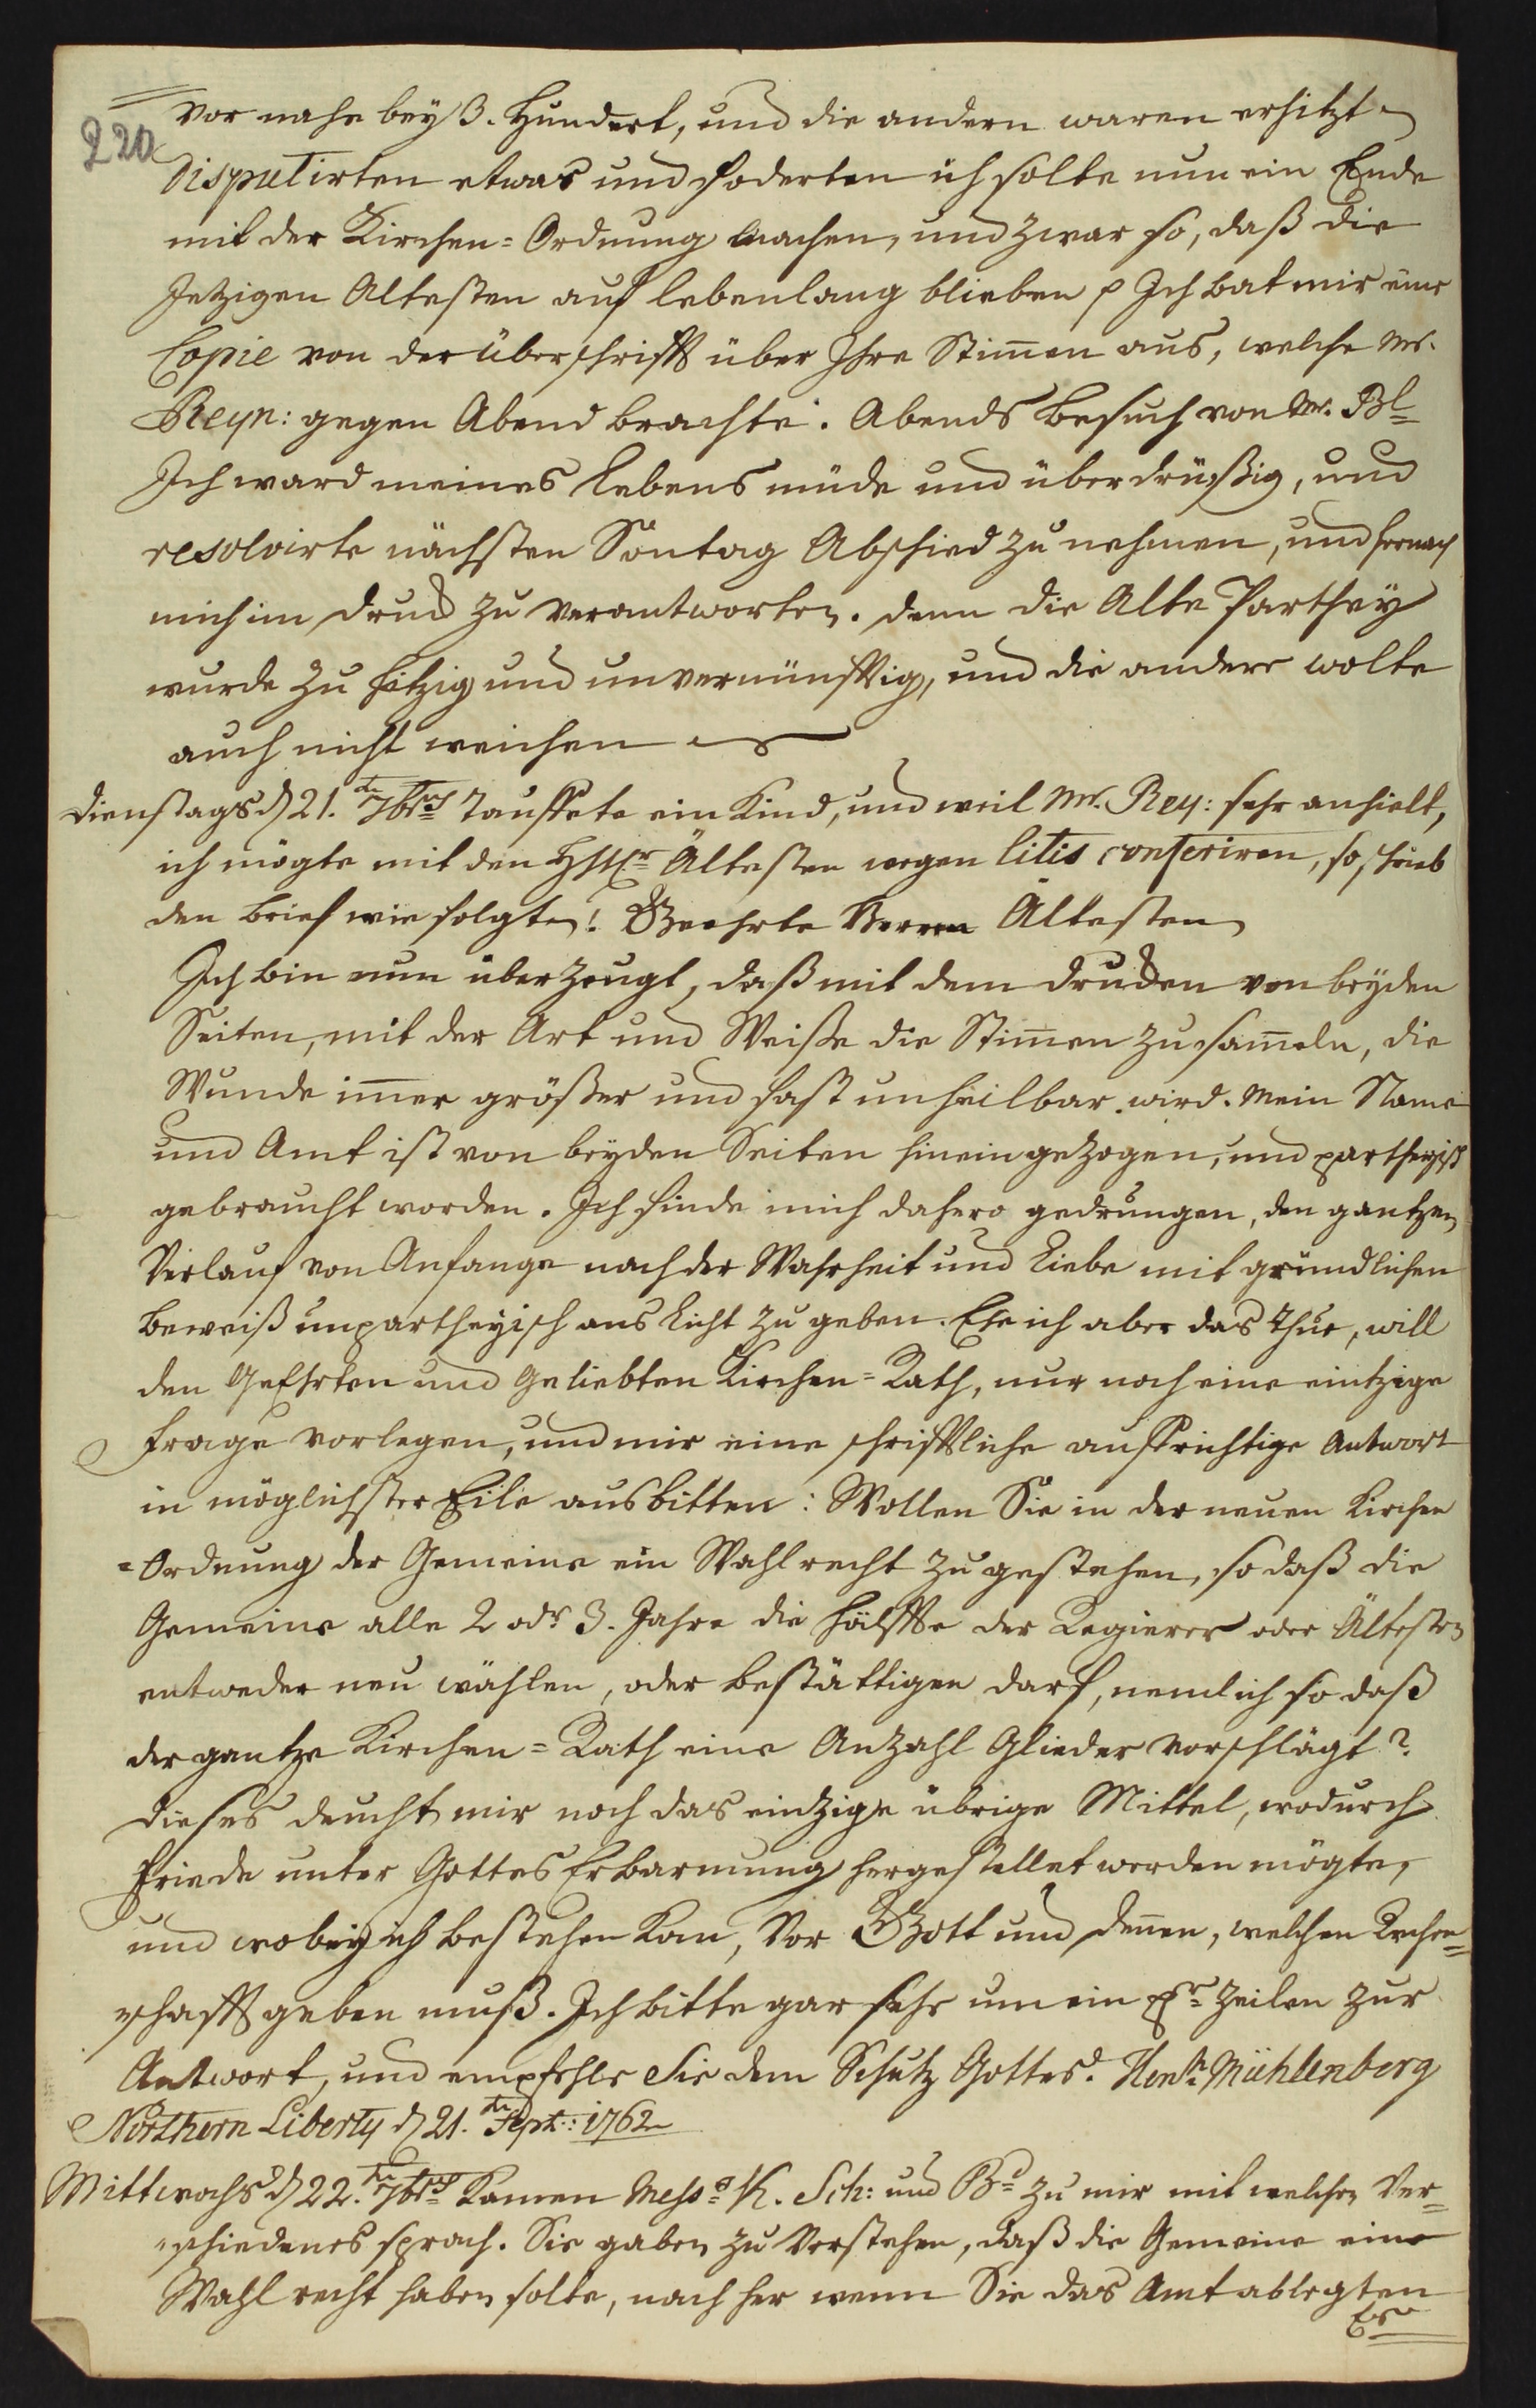 220
vor nahe bey 3. Hundert, und die andern waren erhitzt
disputirten etwas und foderten ich solte nun ein Ende
mit der Kirchen=Ordnung machen, und zwar so, daß die
Jetzigen Altesten auf lebenlang blieben p Ich bat mir eine
Copie von der überschrifft über Ihre Stim̄en aus, welche Mr.
Reyn: gegen Abend brachte. Abends Besuch von Mr. Bl=
Ich ward meines Lebens müde und überdrüßig, und
resolvirte nächsten Sontag Abschied zu nehmen, und hernach
mich im druck zu verantworten. denn die Alte Parthey
wurde zu hitzig und unvernünfftig, und die andere wolte
auch nicht weichen
Dienstags d 21. 7brs Tauffete ein Kind, und weil Mr. Rey: sehr anhielt,
ich mögte mit den Ältesten wegen litis conferiren, so schrieb
den Brief wie folgte! Geehrte Herren Ältesten
Ich bin nun überzeugt, daß mit dem drucken von beyden
Seiten, mit der Art und Weiße die Stim̄en zu sam̄eln, die
Wunde im̄er größer und fast unheilbar wird. Mein Name
und Amt ist von beyden Seiten hineingezogen, und partheyisch
gebraucht worden. Ich finde mich dahero gedrungen, den gantzen
Verlauf von Anfange nach der Wahrheit und Liebe mit gründlichen
Beweiß unpartheyisch ans Licht zu geben. Ehe ich aber das thue, will
den GeEhrten und Geliebten Kirchen=Rath, nur noch eine eintzige
Frage vorlegen, und mir eine schrifftliche auffrichtige Antwort
in möglichster Eile ausbitten: Wollen Sie in der neuen Kirchen
=Ordnung der Gemeine ein Wahlrecht zugestehen, so daß die
Gemeine alle 2 odr 3. Jahre die Hälffte der Regierer oder Ältesten
entweder neu wählen, oder bestättigen darf, nemlich so daß
der gantze Kirchen=Rath eine Anzahl Glieder vorschlägt?
dieses deucht mir noch das eintzige übrige Mittel, wodurch
Friede unter Gottes Erbarmung hergestellet werden mögte,
und wobey ich bestehen kan, Vor Gott und denen, welchen Rechen=
schafft geben muß. Ich bitte gar sehr um ein Zeilen zur
Antwort, und empfehle Sie dem Schutz Gottes. Henr. Mühlenberg
Northern Liberty d 21. Sept: 1762
Mittwochs d 22. 7brs Kamen Mess. K. Sch: und B= zu mir mit welchen Ver=
schiedenes sprach. Sie gaben zu Verstehen, daß die Gemeine eine
Wahl recht haben solte, nach her wenn Sie das Amt ablegten